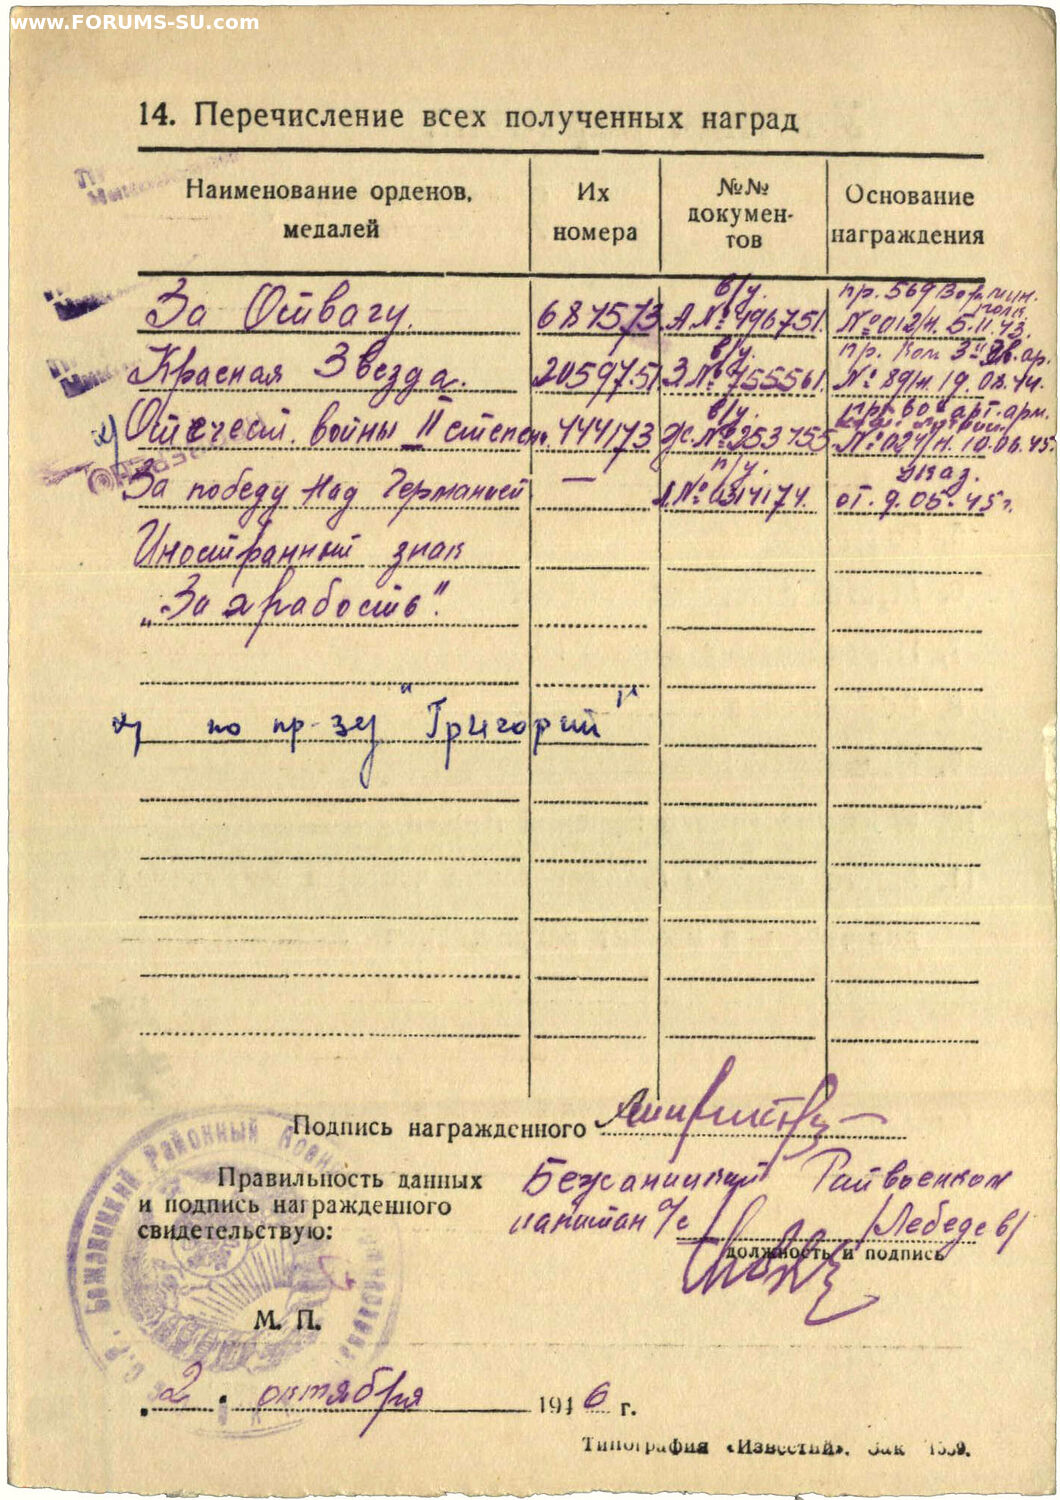 www.FORUMS-SU.com
14. Перечисление всех полученных наград
Наименование орденов, медалей
Их номера
№№ документов
Основание награждения
За Отвагу. 687573 в/у. А № 496751. пр. 569 мин. полк № 012/н. 5.11.43.
Красная Звезда. 2059751 в/у. З № 755561. пр. Ком 3й ар. № 89/н. 19.08.44.
х) Отечест. войны II степен. 444173 в/у. № 253755 арт. арм. № 024/н. 10.06.45.
За победу над Германией — п/у. № 0314174. Указ. от. 9.05.45 г.
Иностранный знак
„За храбость".
х) по пр-зу "Григорий"
Подпись награжденного
Правильность данных
и подпись награжденного
свидетельствую:
Бежаницкий Райвоенком
капитан /Лебедев/
должность и подпись
Бежаницкий Районный
М. П.
2. октября 1946 г.
Типография «Известий». Зак 1559.